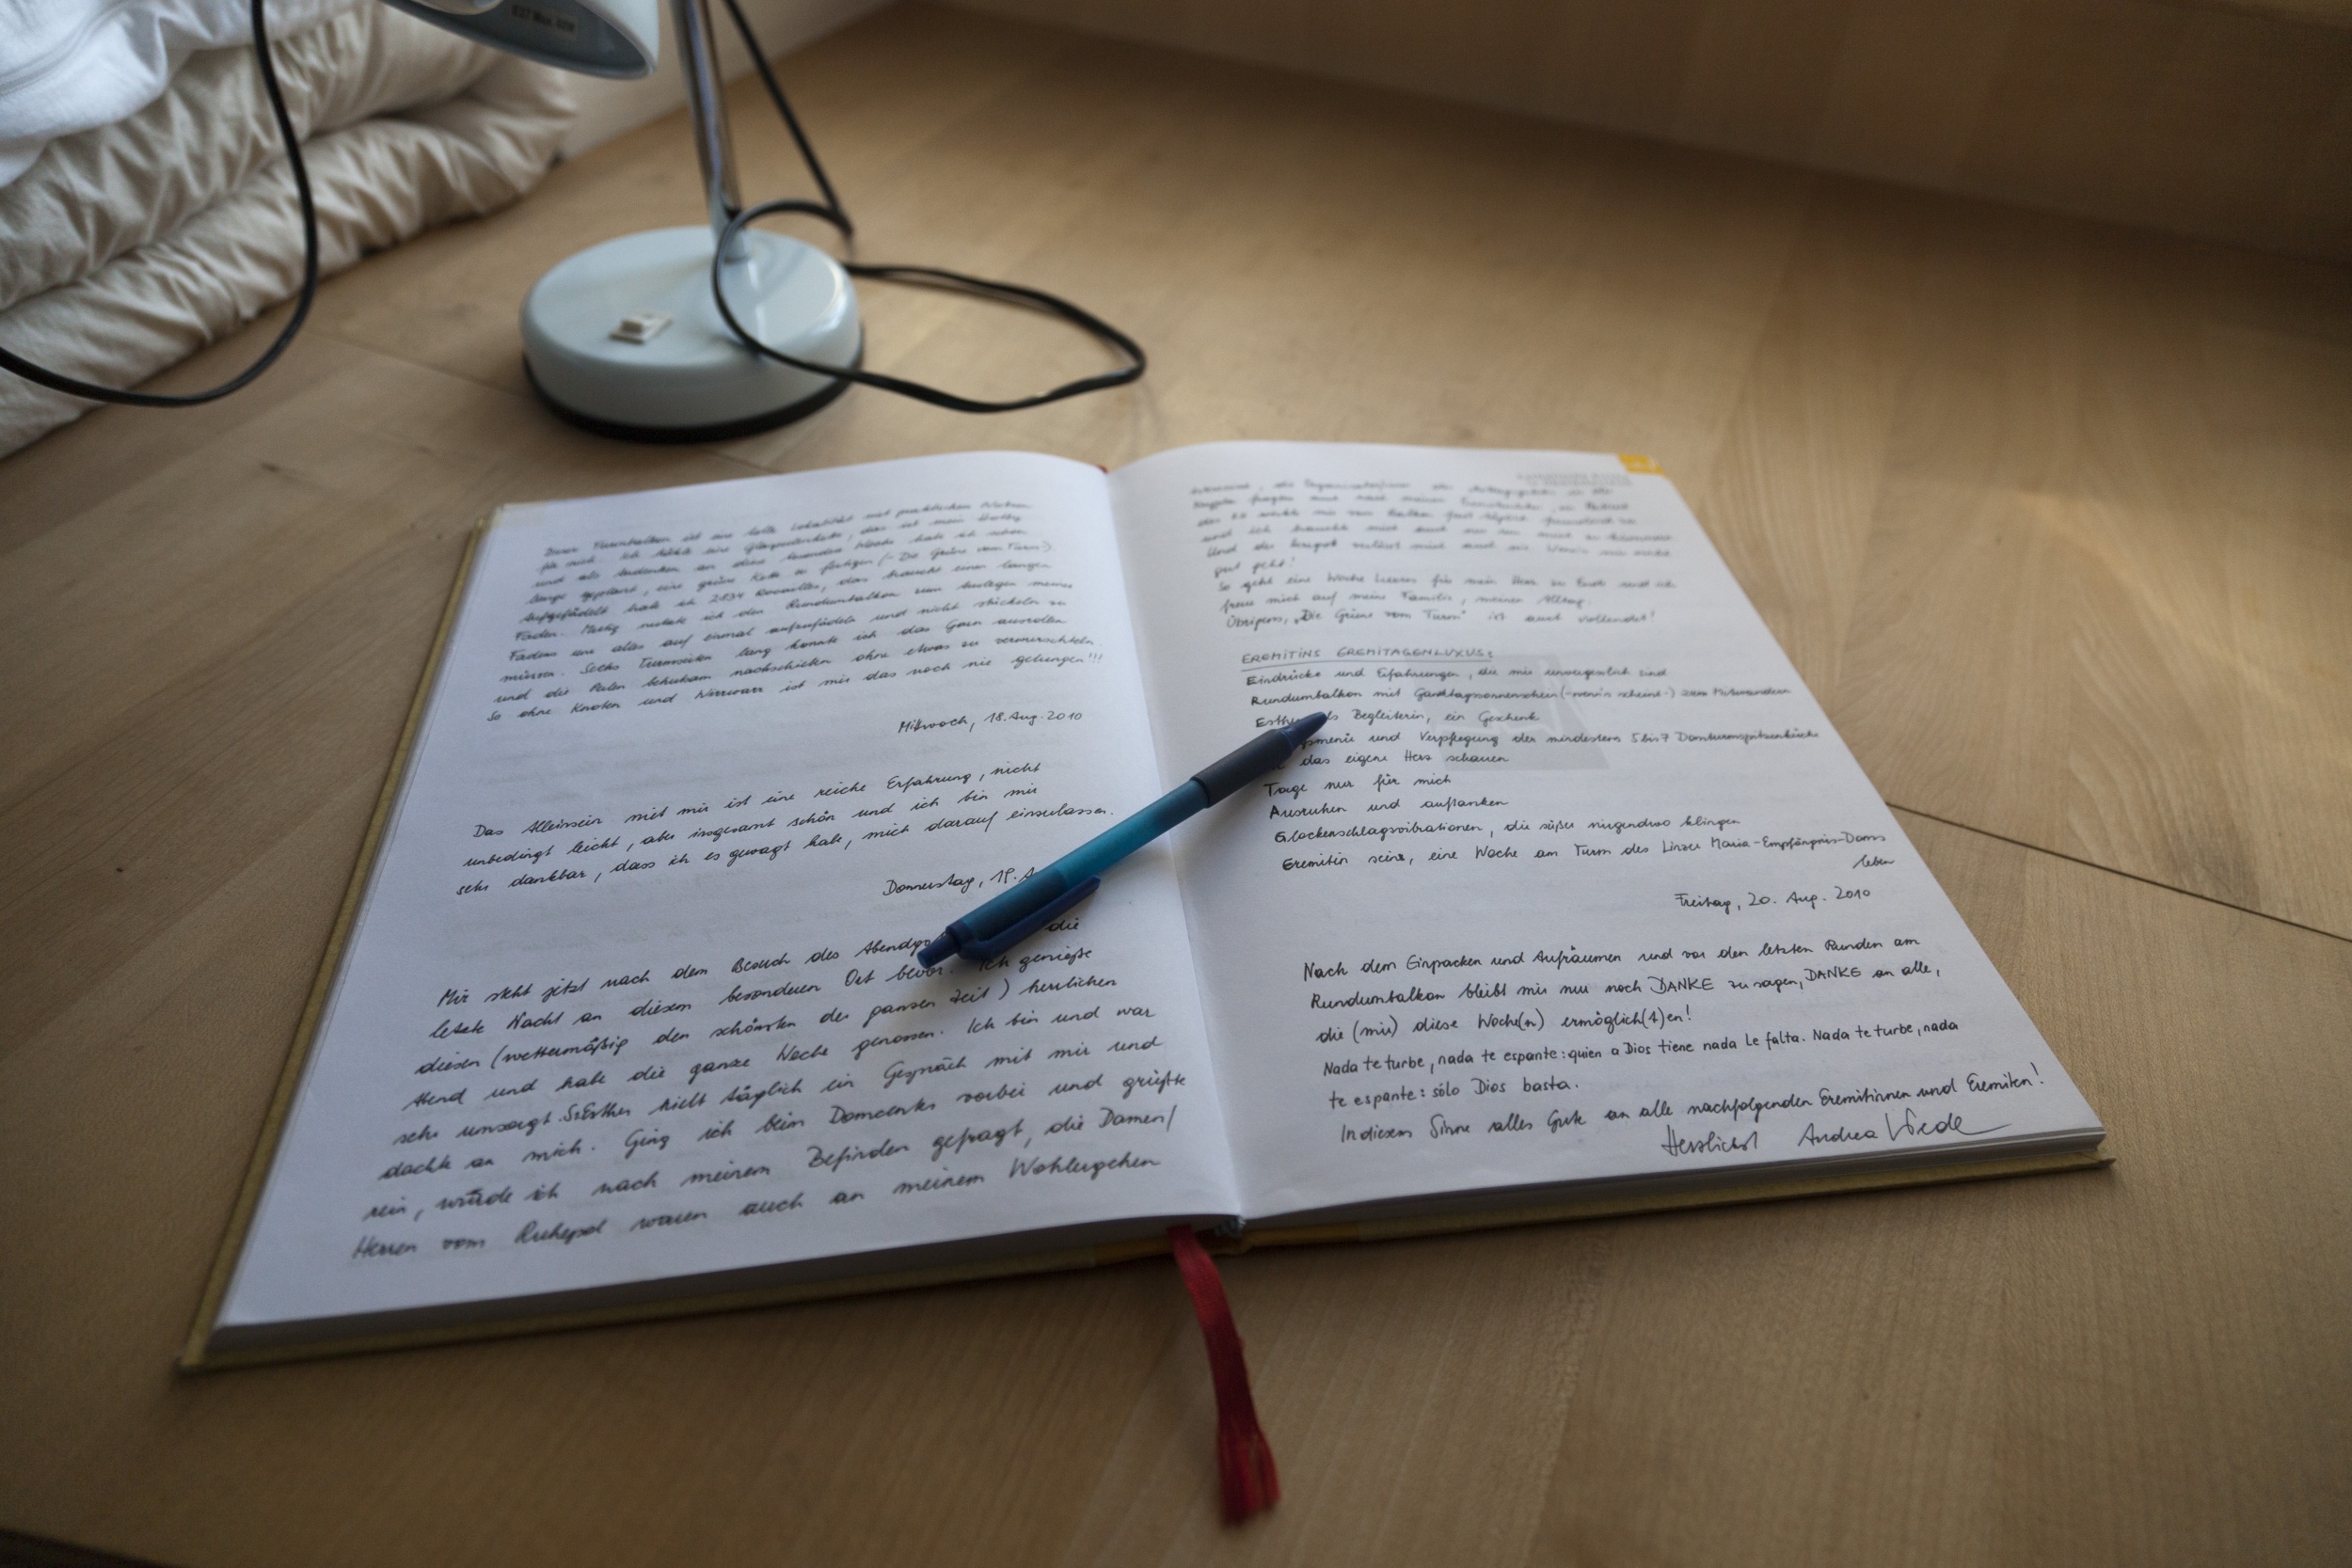 E27 Max. 40W
Dieser Turmbalkon ist eine tolle Lokalität mit praktischem Nutzen
für mich. Ich fädle eine, das ist mein Hobby
und als Andenken an diese besondere Woche habe ich schon
lange geplant, eine grüne Kette zu fertigen (- Die Grüne vom Turm).
Aufgefädelt habe ich 2834 Rocailles, das braucht einen langen
Faden. Mutig nutzte ich den Rundumbalkon zum Auslegen meines
Fadens um alles auf einmal aufzufädeln und nicht stückeln zu
müssen. Sechs Turmseiten lang konnte ich das Garn ausrollen
und die Perlen behutsam nachschieben ohne etwas zu verwurschteln.
So ohne Knoten und Wirrwarr ist mir das noch nie gelungen!!!
Mittwoch, 18. Aug. 2010
Das Alleinsein mit mir ist eine reiche Erfahrung, nicht
unbedingt leicht, aber insgesamt schön und ich bin mir
sehr dankbar, dass ich es gewagt habe, mich darauf einzulassen.
Donnerstag, 19. A
Mir steht jetzt nach dem Besuch des die
letzte Nacht an diesem besonderen Ort bevor. Ich genieße
diesen (wettermäßig den schönsten der ganzen Zeit) herrlichen
Abend und habe die ganze Woche genossen. Ich bin und war
sehr umsorgt. Sr. Esther hielt täglich ein Gespräch mit mir und
dachte an mich. Ging ich beim Domcenter vorbei und grüßte
rein, wurde ich nach meinem Befinden gefragt, die Damen/
Herren vom Ruhepol waren auch an meinem Wohlergehen
und ich brauchte mich auch um
Und der verlässt mich auch nie. Wenn's mir nicht
gut geht!
So geht eine Woche Luxus für mein Herz zu Ende und ich
freue mich auf meine Familie, meinen Alltag.
Übrigens, „Die Grüne vom Turm" ist auch vollendet!
EREMITINS EREMITAGENLUXUS:
Eindrücke und Erfahrungen, die mir unvergesslich sind
Rundumbalkon mit Ganztagsonnenschein (-wenn's scheint-) zum Mitwandern
Esther als Begleiterin, ein Geschenk
menü und Verpflegung der mindestens 5 bis 7 Domturmspitzenküche
das eigene Herz schauen
Tage nur für mich
Ausruhen und auftanken
Glockenschlagvibrationen, die süßer nirgendwo klingen
Eremitin sein, eine Woche am Turm des Linzer Maria-Empfängnis-Doms
leben
Freitag, 20. Aug. 2010
Nach dem Einpacken und Aufräumen und vor den letzten Runden am
Rundumbalkon bleibt mir nur noch DANKE zu sagen, DANKE an alle,
die (mir) diese Woche(n) ermöglich(t)en!
Nada te turbe, nada te espante: quien a Dios tiene nada le falta. Nada te turbe, nada
te espante: sólo Dios basta.
In diesem Sinne alles Gute an alle nachfolgenden Eremitinnen und Eremiten!
Herzlichst Andrea